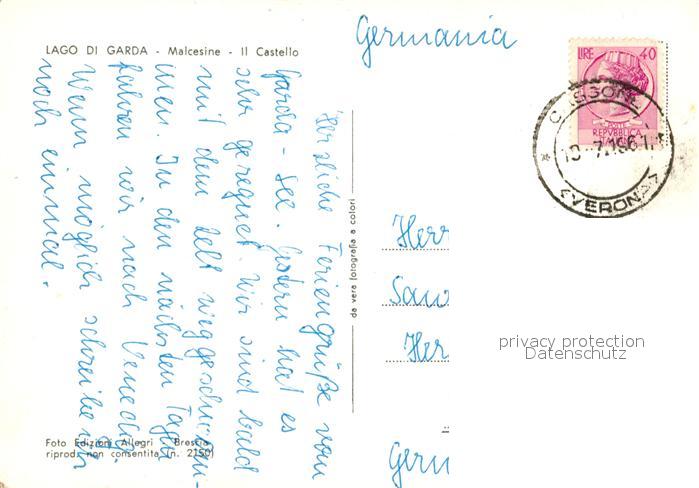 LAGO DI GARDA - Malcesine - Il Castello
Germania
LIRE 40
POSTE
REPVBBLICA
ITALIANA
CASSONE
10-7.1961
(VERONA)
Herzliche Feriengrüße vom
Garda-See. Gestern hat es
sehr geregnet. Wir sind bald
mit dem Zelt weggeschwom-
men. In den nächsten Tagen
fahren wir nach Venedig.
Wenn möglich schreibe ich
noch einmal.
da vera fotografia a colori
Herr
Her
Germ
privacy protection
Datenschutz
Foto Edizioni Allegri - Brescia
riprod. non consentita (n. 2150)